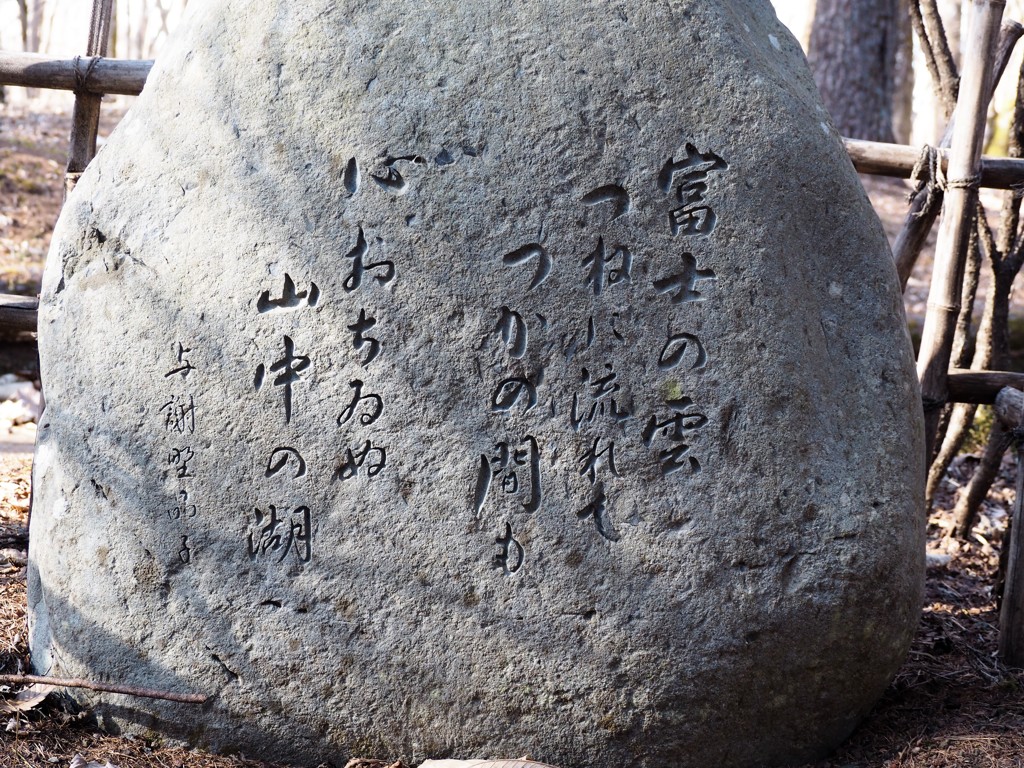 富士の雲
つねに流れて
つかの間も
心おちゐぬ
山中の湖
与謝野晶子